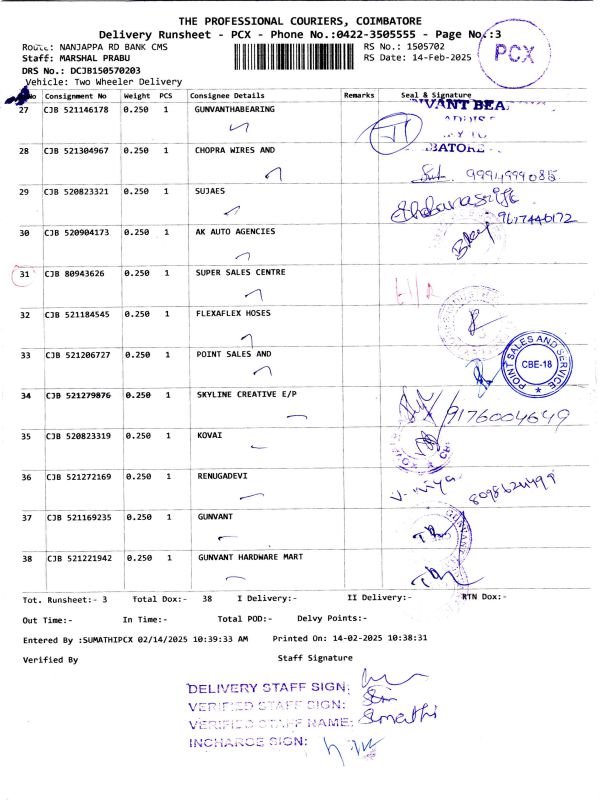 THE PROFESSIONAL COURIERS, COIMBATORE
Delivery Runsheet - PCX - Phone No.:0422-3505555 - Page No.:3
PCX
Route: NANJAPPA RD BANK CMS RS No.: 1505702
Staff: MARSHAL PRABU RS Date: 14-Feb-2025
DRS No.: DCJB150570203
Vehicle: Two Wheeler Delivery
No Consignment No Weight PCS Consignee Details Remarks Seal & Signature
27 CJB 521146178 0.250 1 GUNVANTHABEARING
28 CJB 521304967 0.250 1 CHOPRA WIRES AND
9994999085
29 CJB 520823321 0.250 1 SUJAES
9677446172
30 CJB 520904173 0.250 1 AK AUTO AGENCIES
31 CJB 80943626 0.250 1 SUPER SALES CENTRE
32 CJB 521184545 0.250 1 FLEXAFLEX HOSES
33 CJB 521206727 0.250 1 POINT SALES AND
POINT SALES AND SERVICE
CBE-18
34 CJB 521279876 0.250 1 SKYLINE CREATIVE E/P
9176004649
35 CJB 520823319 0.250 1 KOVAI
36 CJB 521272169 0.250 1 RENUGADEVI
37 CJB 521169235 0.250 1 GUNVANT
GUNVANT
38 CJB 521221942 0.250 1 GUNVANT HARDWARE MART
Tot. Runsheet:- 3 Total Dox:- 38 I Delivery:- II Delivery:- RTN Dox:-
Out Time:- In Time:- Total POD:- Delvy Points:-
Entered By :SUMATHIPCX 02/14/2025 10:39:33 AM Printed On: 14-02-2025 10:38:31
Verified By Staff Signature
DELIVERY STAFF SIGN:
VERIFIED STAFF SIGN:
VERIFIED STAFF NAME: Sumathi
INCHARGE SIGN: